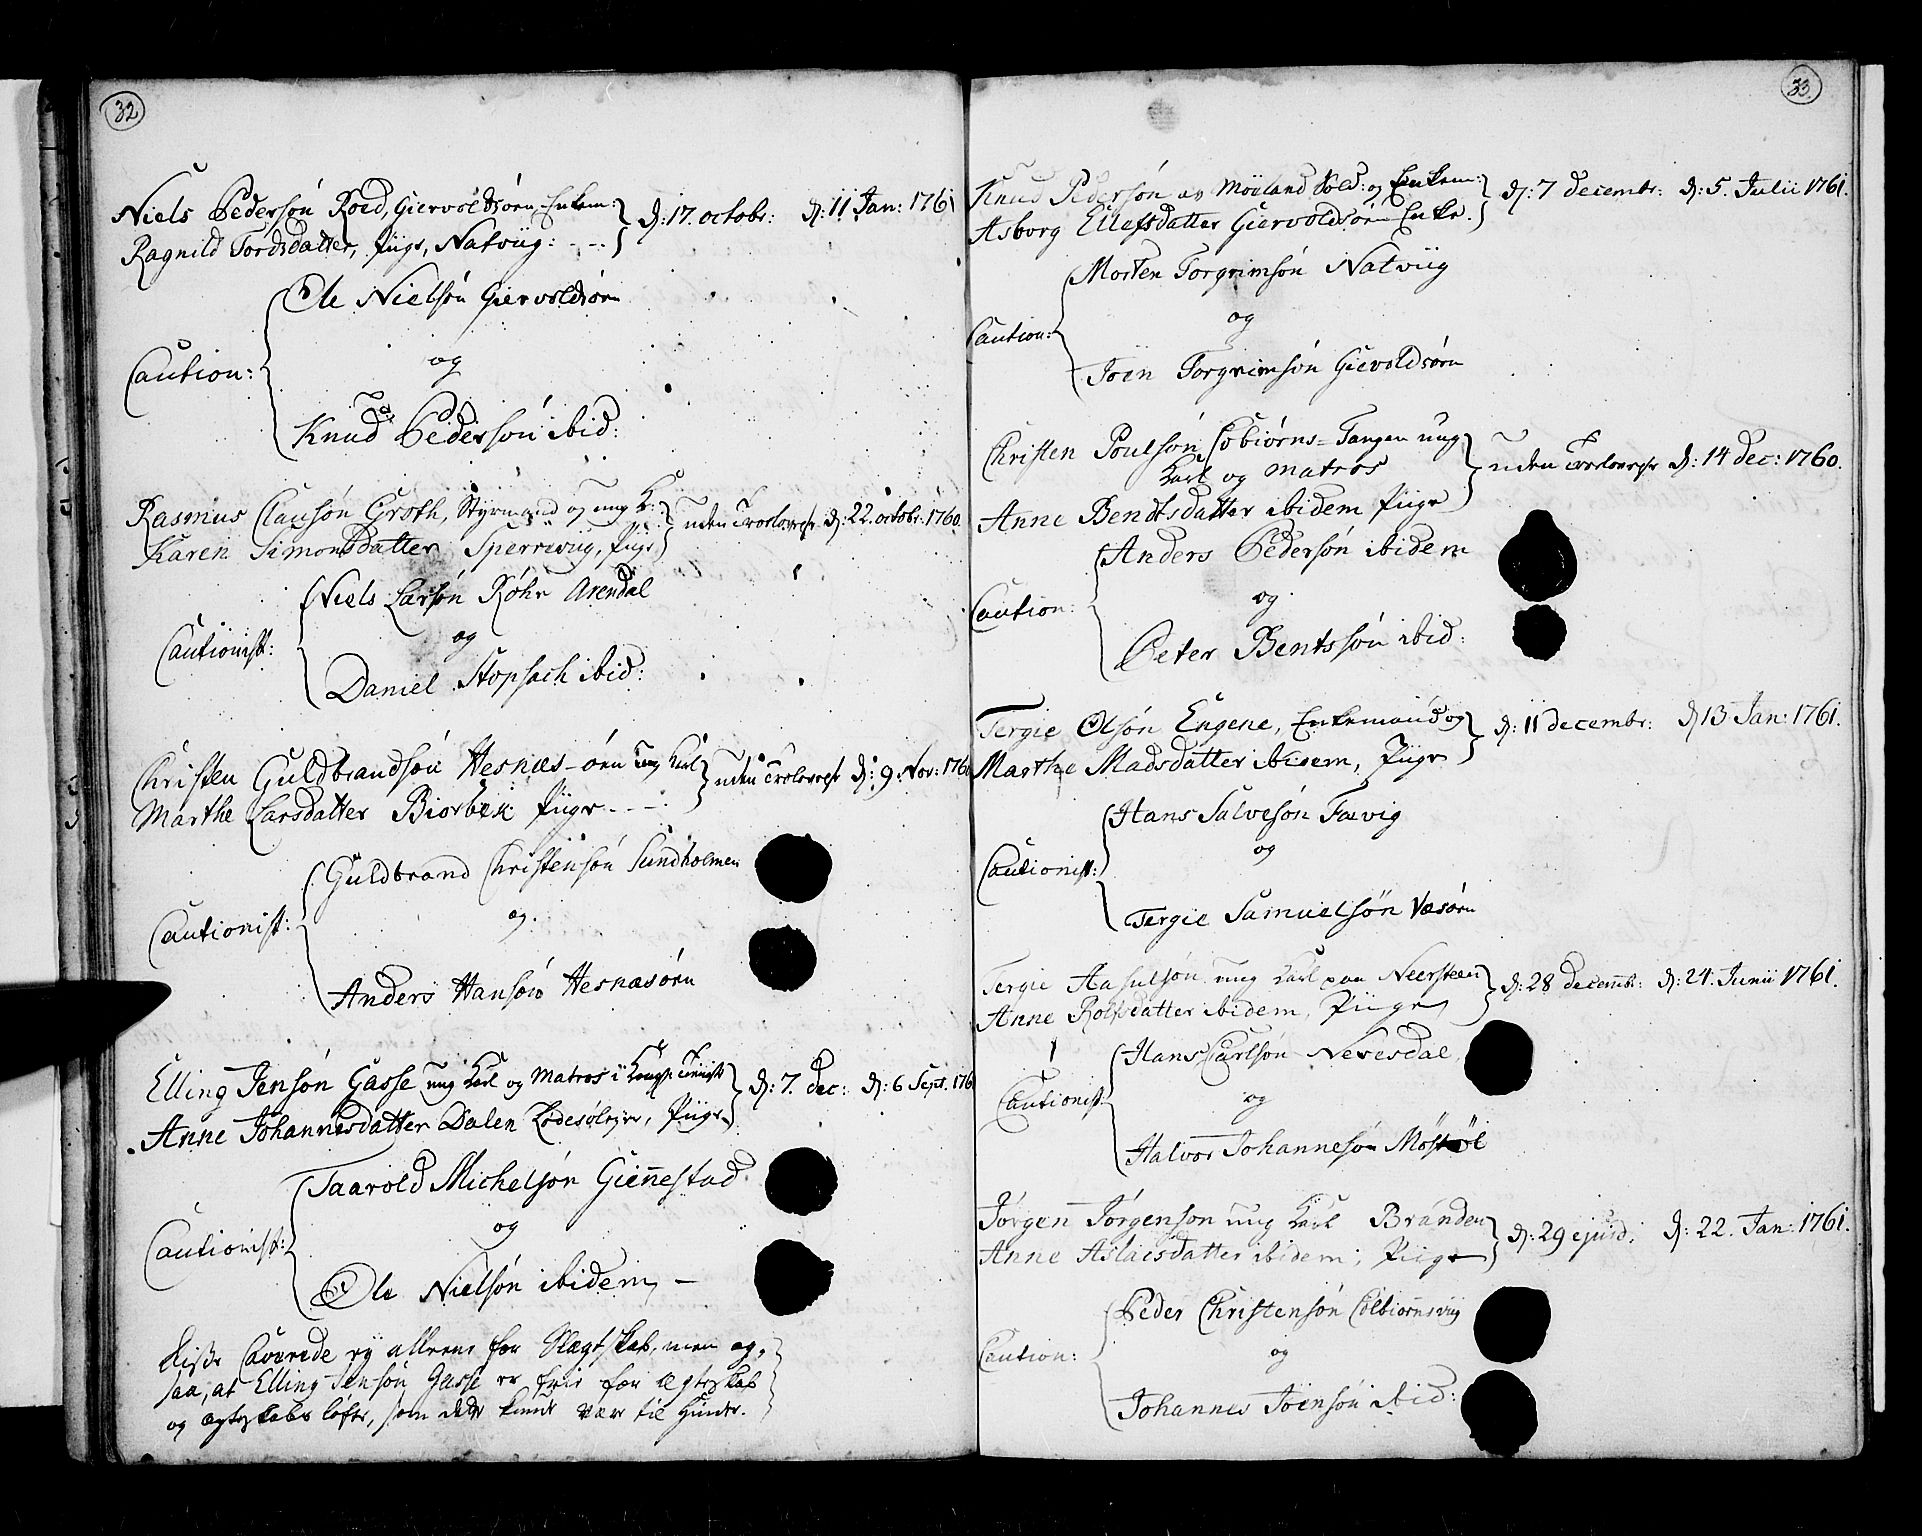 32
Niels Pedersøn Roed, Giervoldsøen Enkem: d: 17. octobr: d: 11 Jan: 1761
Ragnild Tordsdatter, Piige, Natviig:
Ole Nielsøn Giervoldsøen
Caution: og
Knud Pedersøn ibid:
Rasmus Clausøn Groth, Styrmand og ung K: uden Trolovelse d: 22. octobr: 1760.
Karen Simonsdatter Sperrevig, Piige
Niels Larsøn Røhr Arendal
Cautionist: og
Daniel Stopsach ibid:
Christen Guldbrandsøn Hesnæs-øen ung Karl uden Trolovelse d: 9. Nov: 176
Marthe Larsdatter Biorbek Piige
Guldbrand Christensøn Sundholmen
Cautionist: og
Anders Hansøn Hesnæsøen
Elling Jensøn Gasse ung Karl og Matros i Kongl: Tieniste d: 7. Dec: d: 6 Sept. 176
Anne Johannesdatter Dalen Piige
Taarold Michelsøn Giennestad
Cautionist: og
Ole Nielsøn ibidem
disse Caverede ey allene for Slægtskab, men og-
saa, at Elling Jensøn Gasse er frie for ægteskab
og ægteskabs løfte, som dette kunde være til Hinder.
33
Knud Pedersøn Møyland Sold: og Enkem: d: 7 decembr: d: 5. Julii 1761.
Asborg Ellefsdatter Giervoldsøen Enke.
Morten Torgrimsøn Natviig
Caution: og
Joen Torgrimsøn Gievoldsøen
Christen Poulsøn Cobiørns=Tangen ung uden Trolovelse d: 14 Dec: 1760.
Karl og matros
Anne Bendtsdatter ibidem Piige
Anders Pedersøn ibidem
Caution: og
Peter Bentssøn ibid:
Tergie Olsøn Engene, Enkemand og d: 11 decembr: d 13 Jan: 1761.
Marthe Madsdatter ibidem, Piige
Hans Salvesøn Fævig
Cautionist: og
Tergie Samuelsøn Væsøen
Tergie Aasulsøn ung Karl paa Neersteen d: 28 decembr: d: 24. Junii 1761.
Anne Rolfsdatter ibidem, Piige
Hans Carlsøn Nevesdal
Cautionist: og
Halvor Johannesøn
Jørgen Jørgensøn ung Karl Brånden d: 29 ejusd. d: 22. Jan: 1761.
Anne Aslacsdatter ibidem, Piige
Peder Christensøn Colbiørnsviig
Caution: og
Johannes Joensøn ibid: